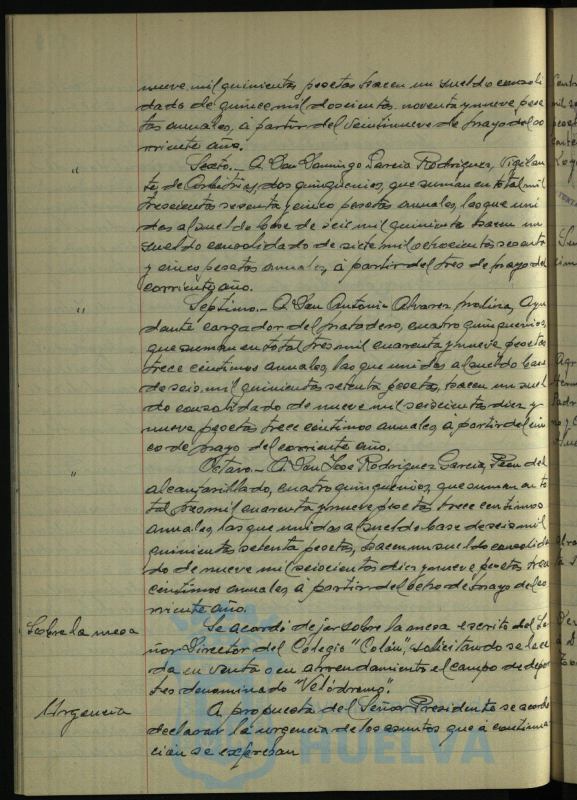 nueve mil quinientas pesetas hacen un sueldo consoli
dado de quince mil doscientas noventa y nueve pese
tas anuales, á partir del veintinueve de mayo del co
rriente año.
" Sexto.- A Don Domingo Garcia Rodriguez, Vigilan
te de Arbitrios, dos quinquenios, que suman en total mil
trescientas sesenta y cinco pesetas anuales, las que uni
das al sueldo base de seis mil quinientas hacen un
sueldo consolidado de siete mil ochocientas sesenta
y cinco pesetas anuales, á partir del tres de mayo del
corriente año.
" Septimo.- A Don Antonio Alvarez Molina, Ayu
dante cargador del matadero, cuatro quinquenios,
que suman en total tres mil cuarenta y nueve pesetas
trece centimos anuales, las que unidas al sueldo base
de seis mil quinientas setenta pesetas, hacen un suel
do consolidado de nueve mil seiscientas diez y
nueve pesetas trece centimos anuales, á partir del cin
co de mayo del corriente año.
" Octavo.- A Don Jose Rodriguez Garcia, Peon del
alcantarillado, cuatro quinquenios, que suman en to
tal tres mil cuarenta y nueve pesetas trece centimos
anuales, las que unidas al sueldo base de seis mil
quinientas setenta pesetas, hacen un sueldo consolida
do de nueve mil seiscientas diez y nueve pesetas trece
centimos anuales, á partir del ocho de mayo del co
rriente año.
Sobre la mesa Se acordó dejar sobre la mesa escrito del Se
ñor Director del Colegio "Colón", solicitando se le ce
da en venta o en arrendamiento el campo de depor
tes denominado "Velódromo".
Urgencia A propuesta del Señor Presidente se acordó
declarar la urgencia de los asuntos que á continua
ción se expresan
HUELVA